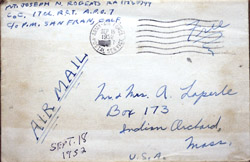 PVT. JOSEPH N. ROBERTS RA
Co C. 17th RCT. A.P.O. 7
C/o P.M. SAN FRAN, CALF.
Free
1952
Mr & Mrs. A. Laperle
Box 173
Indian Orchard,
Mass.
U.S.A.
AIR MAIL
SEPT. 18
1952